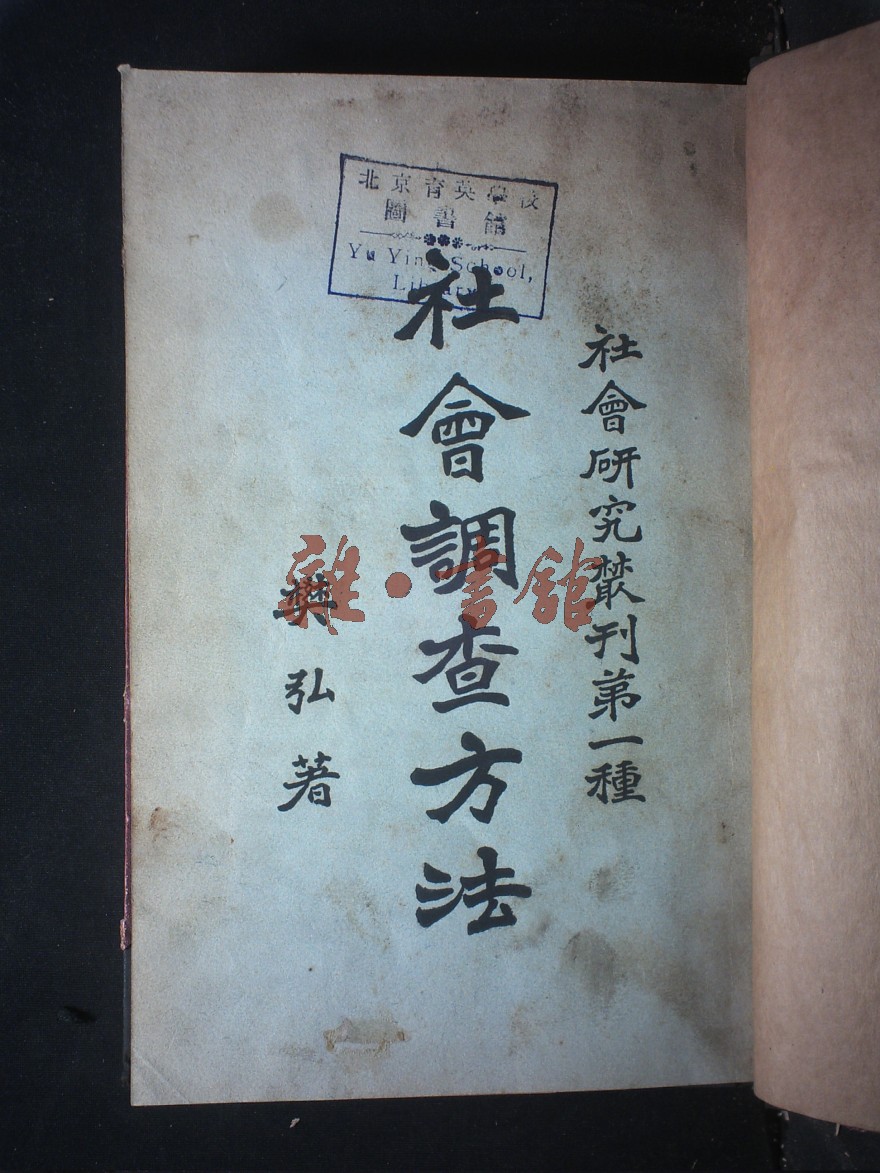 北京育英學校
圖書館
Yu Ying School,
Library
社會研究叢刊第一種
社會調查方法
樊弘著
雜·書館